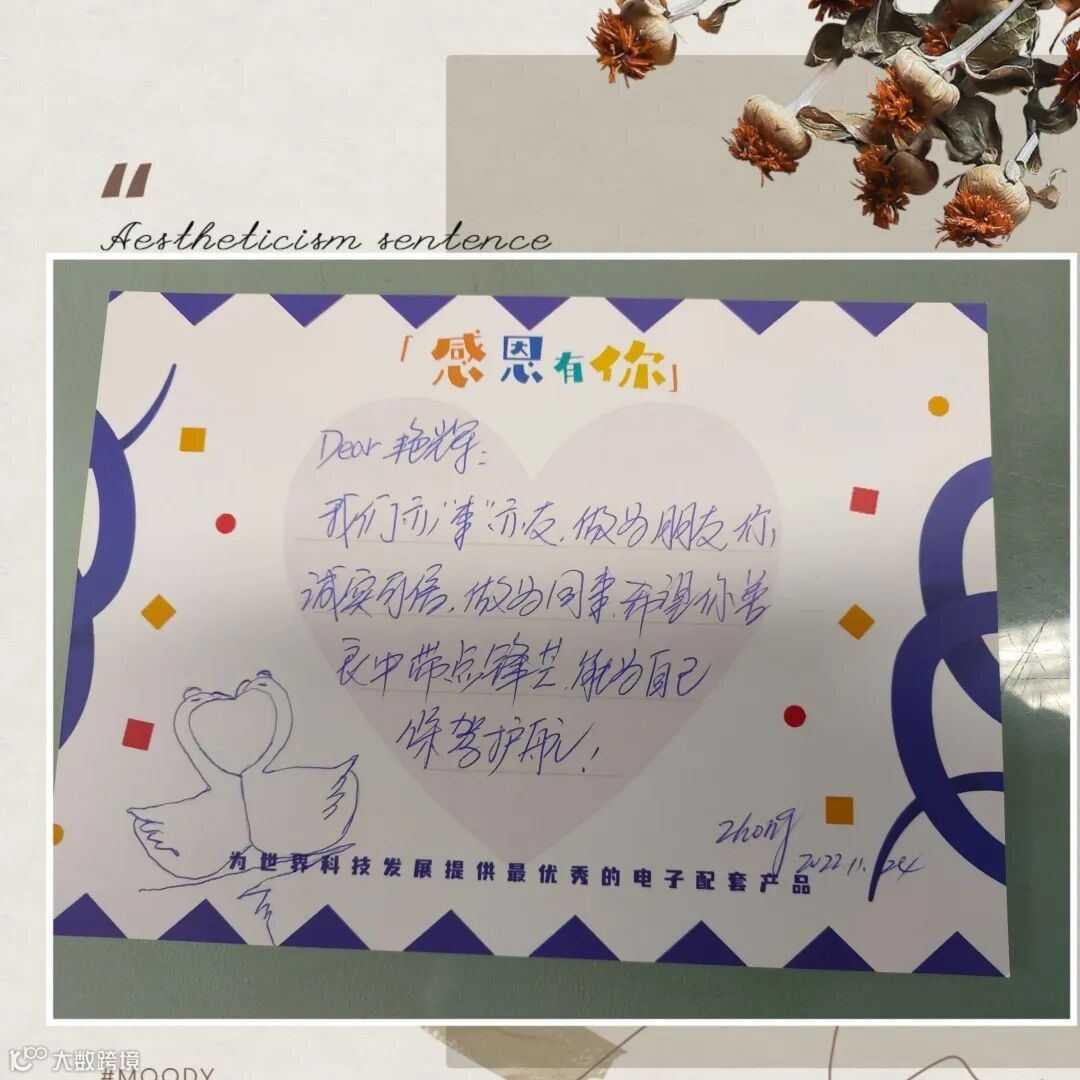 Aestheticism sentence
「感恩有你」
Dear 艳辉：
我们亦“事”亦友，做为朋友，你
诚实可信，做为同事，希望你善
良中带点锋芒，能为自己
保驾护航！
Zhong
2022.11.24
为世界科技发展提供最优秀的电子配套产品
大数跨境
#MOODY